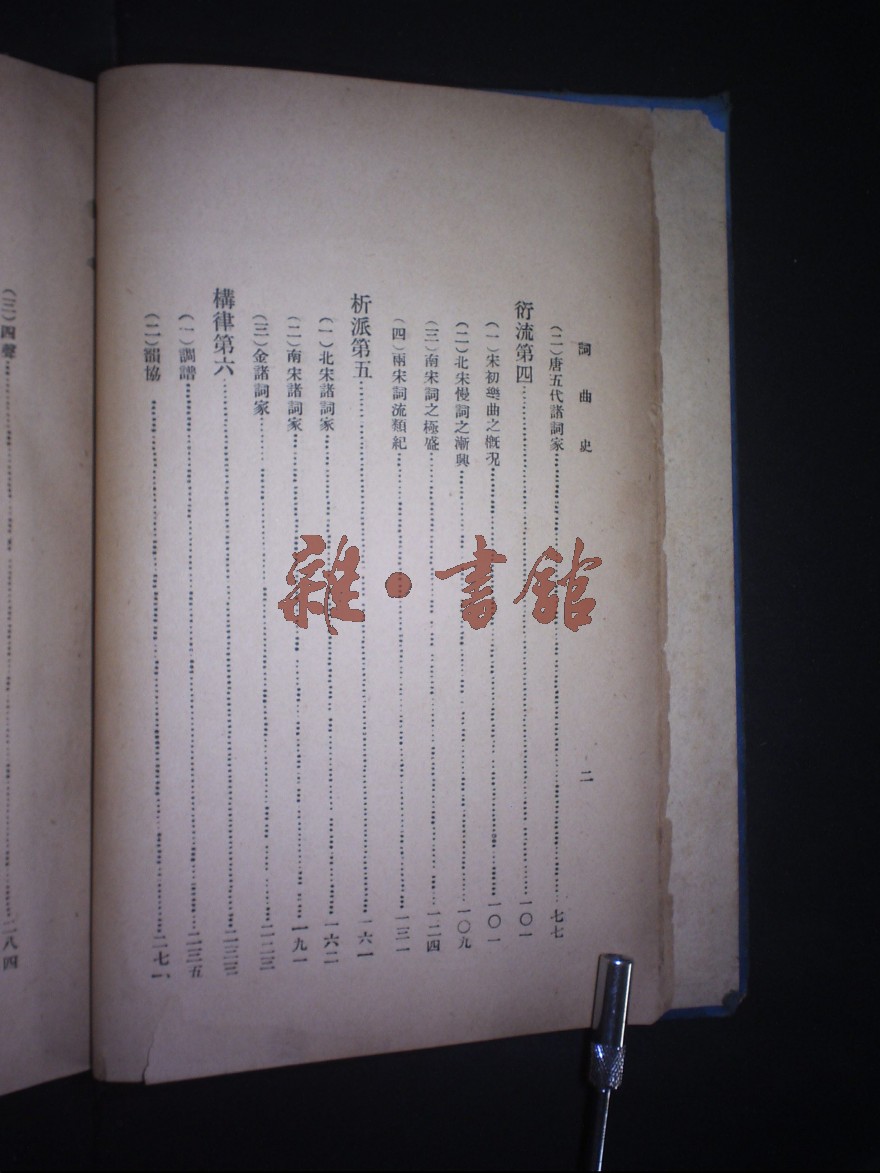 詞曲史
二
(二)唐五代諸詞家 七七
衍流第四 一〇一
(一)宋初樂曲之概况 一〇一
(二)北宋慢詞之漸興 一〇九
(三)南宋詞之極盛 一二四
(四)兩宋詞流類紀 一三一
析派第五 一六一
(一)北宋諸詞家 一六二
(二)南宋諸詞家 一九一
(三)金諸詞家 二二三
構律第六
(一)調譜 二三五
(二)韻協 二七一
(三)四聲 二八四
雜·書館